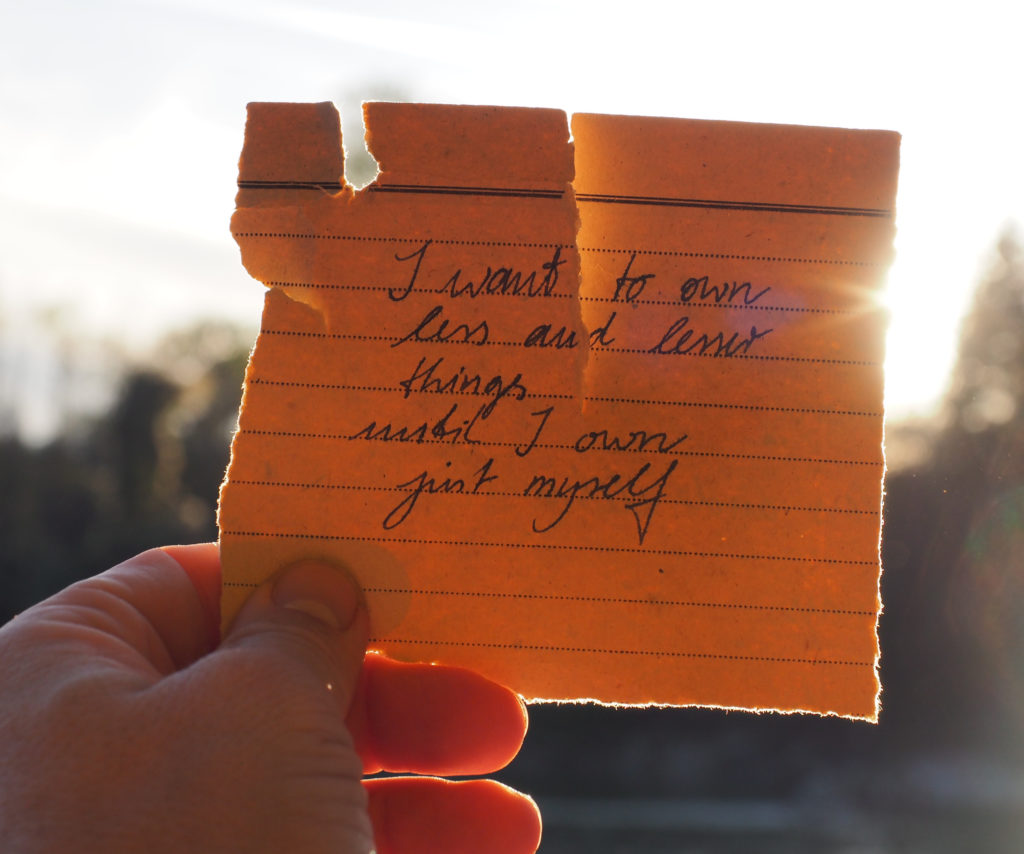 I want to own
less and lesser
things
until I own
just myself